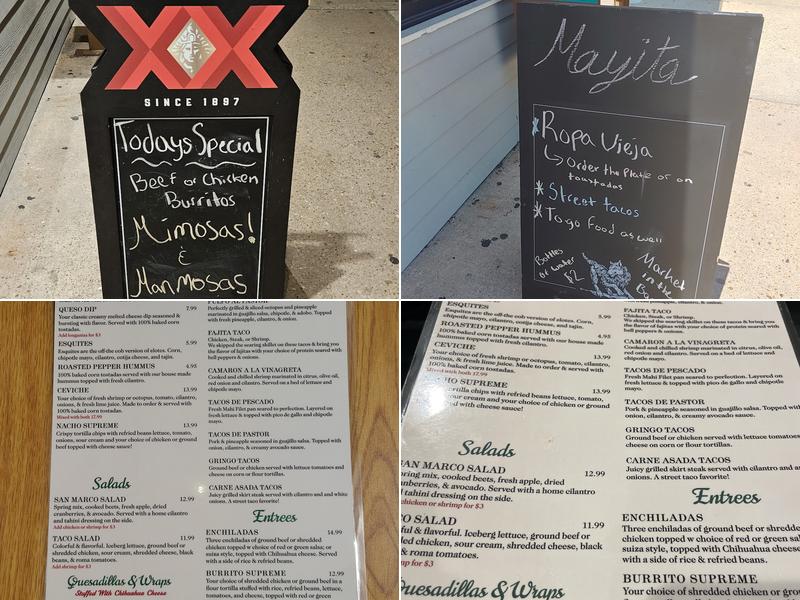 XX
SINCE 1897
Todays Special
Beef or Chicken
Burritos
Mimosas!
&
Manmosas
Mayita
Ropa Vieja
Order the Plate or on
toustadas
Street tacos
To go food as well
Bottles
of water
$2
Market
in the
QUESO DIP 7.99
Your classic creamy melted cheese dip seasoned &
bursting with flavor. Served with 100% baked corn
tostadas.
Add longaniza for $3
ESQUITES 5.99
Esquites are the off-the cob version of elotes. Corn,
chipotle mayo, cilantro, cotija cheese, and tajin.
ROASTED PEPPER HUMMUS 4.95
100% baked corn tostadas served with our house made
hummus topped with fresh cilantro.
CEVICHE 13.99
Your choice of fresh shrimp or octopus, tomato, cilantro,
onions, & fresh lime juice. Made to order & served with
100% baked corn tostadas.
Mixed with both 17.99
NACHO SUPREME 13.99
Crispy tortilla chips with refried beans lettuce, tomato,
onions, sour cream and your choice of chicken or ground
beef topped with cheese sauce!
Salads
SAN MARCO SALAD 12.99
Spring mix, cooked beets, fresh apple, dried
cranberries, & avocado. Served with a home cilantro
and tahini dressing on the side.
Add chicken or shrimp for $3
TACO SALAD 11.99
Colorful & flavorful. Iceberg lettuce, ground beef or
shredded chicken, sour cream, shredded cheese, black
beans & roma tomatoes.
Add shrimp for $3
Quesadillas & Wraps
Stuffed With Chihuahua Cheese
PULPO AL PASTOR
Perfectly grilled & sliced octopus and pineapple
marinated in guajillo salsa, chipotle, & adobo. Topped
with fresh pineapple, cilantro, & onion.
FAJITA TACO
Chicken, Steak, or Shrimp.
We skipped the searing skillet on these tacos & bring you
the flavor of fajitas with your choice of protein seared with
bell peppers & onions.
CAMARON A LA VINAGRETA
Cooked and chilled shrimp marinated in citrus, olive oil,
red onion and cilantro. Served on a bed of lettuce and
chipotle mayo.
TACOS DE PESCADO
Fresh Mahi Filet pan seared to perfection. Layered on
fresh lettuce & topped with pico de gallo and chipotle
mayo.
TACOS DE PASTOR
Pork & pineapple seasoned in guajillo salsa. Topped with
onion, cilantro, & creamy avocado sauce.
GRINGO TACOS
Ground beef or chicken served with lettuce tomatoes and
cheese on corn or flour tortillas.
CARNE ASADA TACOS
Juicy grilled skirt steak served with cilantro and and white
onions. A street taco favorite!
Entrees
ENCHILADAS 14.99
Three enchiladas of ground beef or shredded
chicken topped w choice of red or green salsa; or
suiza style, topped with Chihuahua cheese. Served
with a side of rice & refried beans.
BURRITO SUPREME 12.99
Your choice of shredded chicken or ground beef in a
flour tortilla stuffed with rice, beans, lettuce,
tomatoes, and cheese, topped with red or green
ESQUITES 5.99
Esquites are the off-the cob version of elotes. Corn,
chipotle mayo, cilantro, cotija cheese, and tajin.
ROASTED PEPPER HUMMUS 4.95
100% baked corn tostadas served with our house made
hummus topped with fresh cilantro.
CEVICHE 13.99
Your choice of fresh shrimp or octopus, tomato, cilantro,
onions, & fresh lime juice. Made to order & served with
100% baked corn tostadas.
Mixed with both 17.99
HO SUPREME 13.99
tortilla chips with refried beans lettuce, tomato,
sour cream and your choice of chicken or ground
with cheese sauce!
Salads
SAN MARCO SALAD 12.99
pring mix, cooked beets, fresh apple, dried
anberries, & avocado. Served with a home cilantro
d tahini dressing on the side.
or shrimp for $3
CO SALAD 11.99
ful & flavorful. Iceberg lettuce, ground beef or
ded chicken, sour cream, shredded cheese, black
& roma tomatoes.
mp for $3
uesadillas & Wraps
with fresh pineapple, cilantro, & onion.
FAJITA TACO
Chicken, Steak, or Shrimp.
We skipped the searing skillet on these tacos & bring you
the flavor of fajitas with your choice of protein seared with
bell peppers & onions.
CAMARON A LA VINAGRETA
Cooked and chilled shrimp marinated in citrus, olive oil,
red onion and cilantro. Served on a bed of lettuce and
chipotle mayo.
TACOS DE PESCADO
Fresh Mahi Filet pan seared to perfection. Layered on
fresh lettuce & topped with pico de gallo and chipotle
mayo.
TACOS DE PASTOR
Pork & pineapple seasoned in guajillo salsa. Topped with
onion, cilantro, & creamy avocado sauce.
GRINGO TACOS
Ground beef or chicken served with lettuce tomatoes
cheese on corn or flour tortillas.
CARNE ASADA TACOS
Juicy grilled skirt steak served with cilantro and an
onions. A street taco favorite!
Entrees
ENCHILADAS
Three enchiladas of ground beef or shredded
chicken topped w choice of red or green sal
suiza style, topped with Chihuahua cheese.
with a side of rice & refried beans.
BURRITO SUPREME
Your choice of shredded chicken or gro